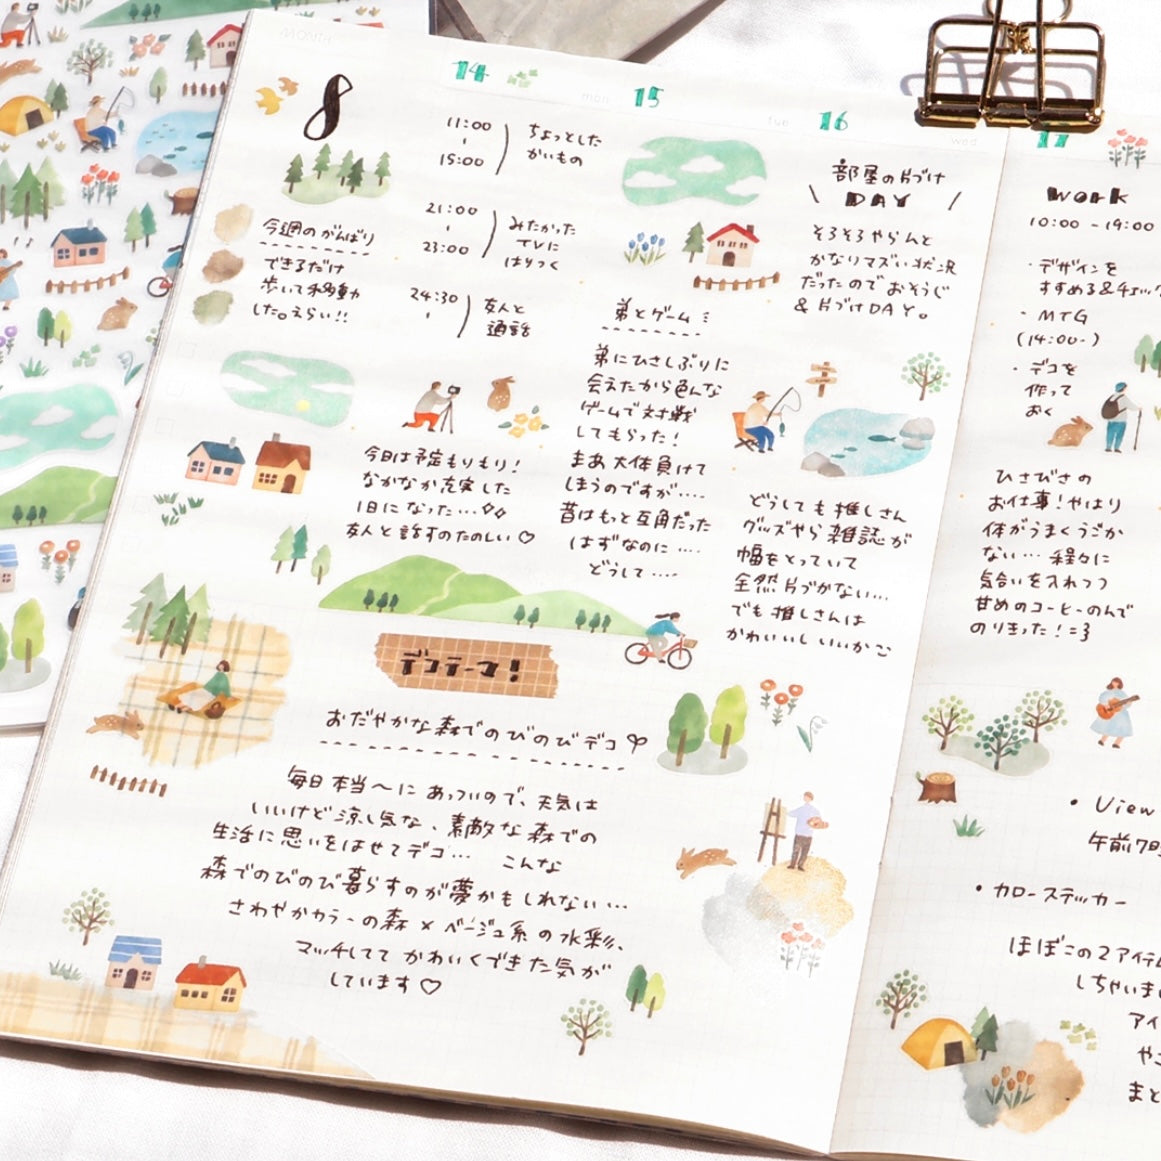 8
今週のがんばり
できるだけ
歩いて移動
した。えらい!!
14
mon
11:00
15:00
ちょっとした
かいもの
21:00
23:00
みたかった
TVに
はりつく
24:30
友人と
通話
今日は予定もりもり!
なかなか充実した
1日になった…
友人と話すのたのしい♡
15
tue
弟とゲーム
弟にひさしぶりに
会えたから色んな
ゲームで対戦
してもらった!
まあ大体負けて
しまうのですが….
昔はもっと互角だった
はずなのに….
どうして….
16
wed
部屋の片づけ
\ DAY /
そろそろやらんと
かなりマズい状況
だったのでおそうじ
&片づけDAY。
どうしても推しさん
グッズやら雑誌が
幅をとっていて
全然片づかない…
でも推しさんは
かわいいしいいかこ
デコテーマ!
おだやかな森でのびのびデコ
毎日本当〜にあっついので、天気は
いいけど涼し気な、素敵な森での
生活に思いをはせてデコ… こんな
森でのびのび暮らすのが夢かもしれない…
さわやかカラーの森×ベージュ系の水彩、
マッチしてて かわいくできた気が
しています♡
17
work
10:00 -19:00
・デザインを
すすめる&チェック
・MTG
(14:00-)
・デコを
作って
おく
ひさびさの
お仕事!やはり
体がうまくうごか
ない… 程々に
気合いを入れつつ
甘めのコーヒーのんで
のりきった!=3
• View
午前7時
• カローステッカー
ほぼこの2アイテム
しちゃいま
アイ
やこ
まと